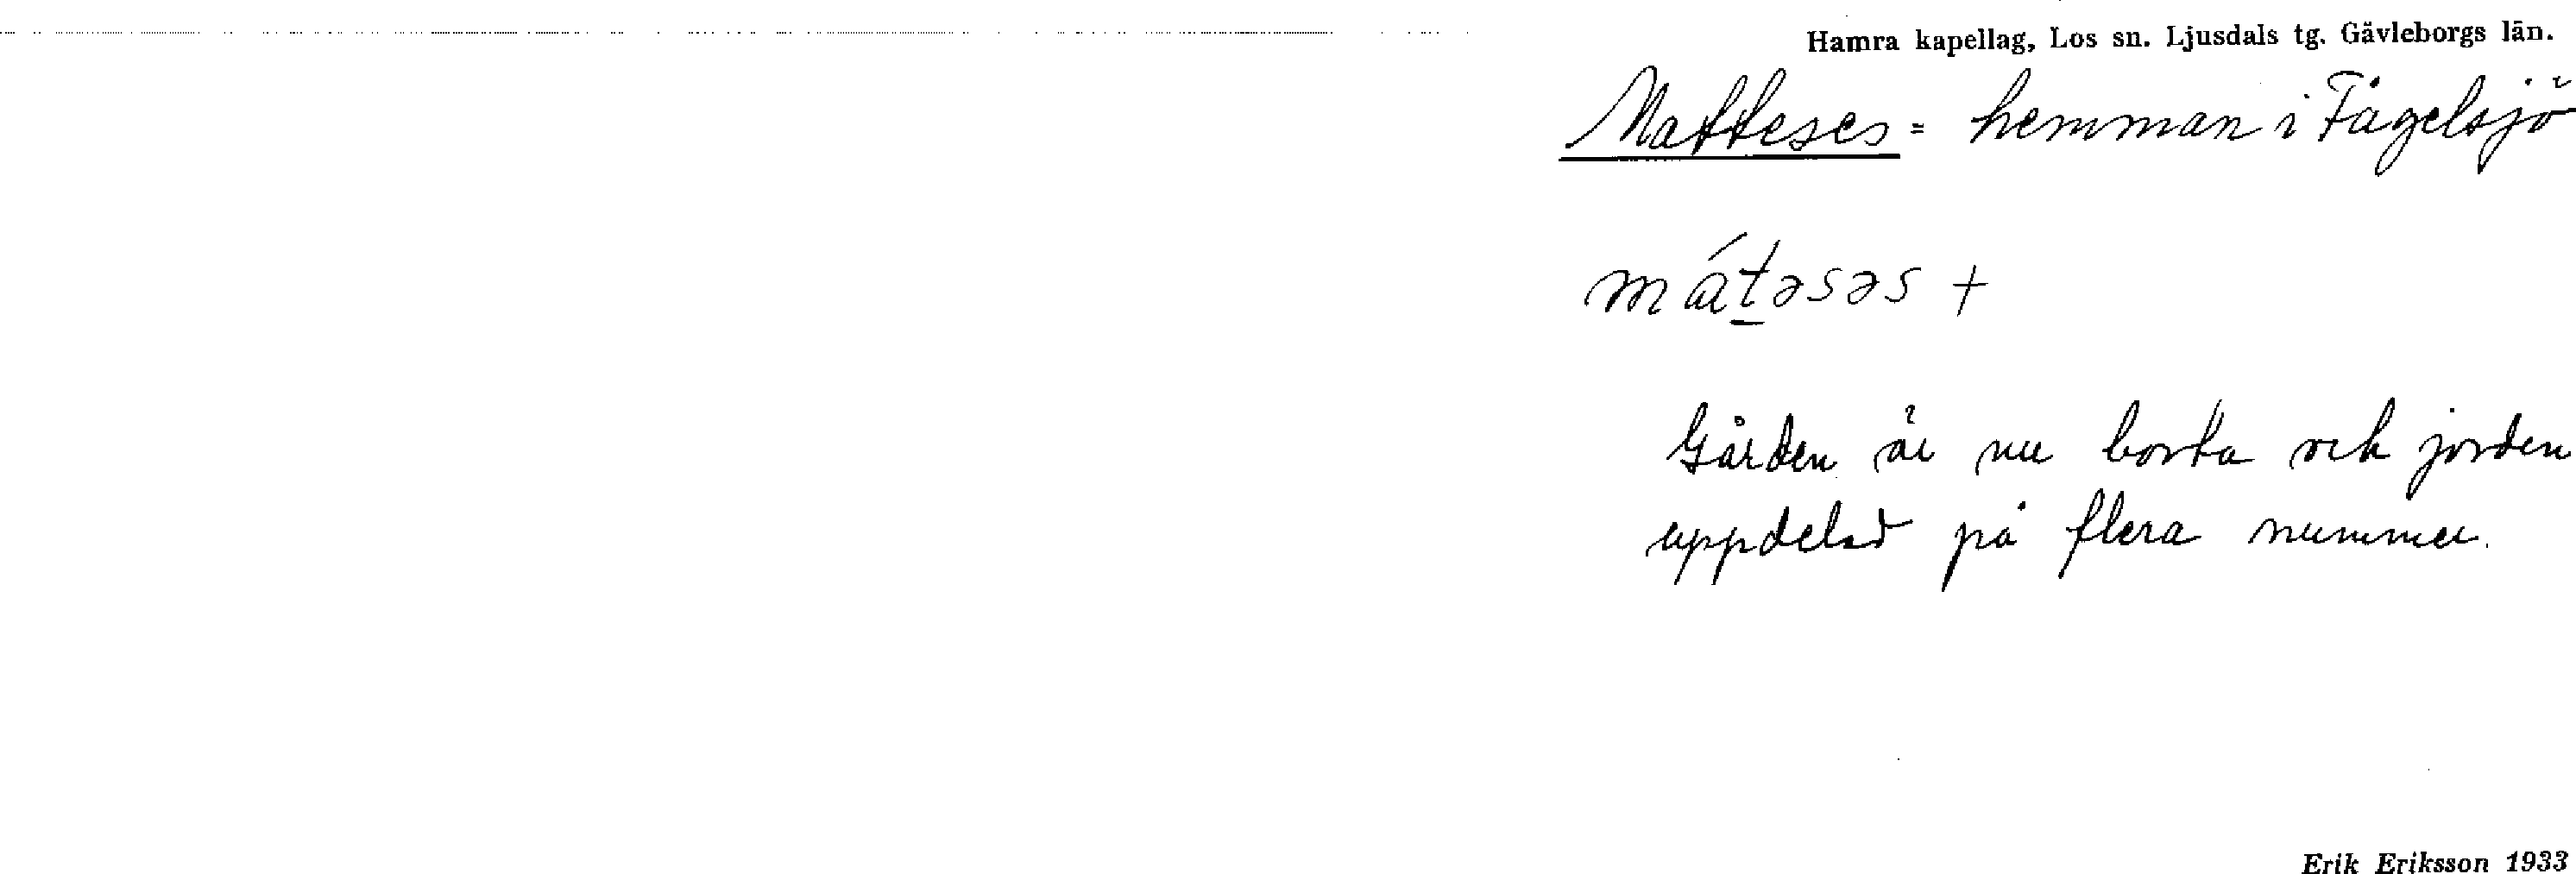 Hamra kapellag, Los sn. Ljusdals tg. Gävleborgs län.
Matteses = hemman i Fågelsjö
mát̲əsəs +
Gården är nu borta och jorden
uppdelad på flera nummer.
Erik Eriksson 1933